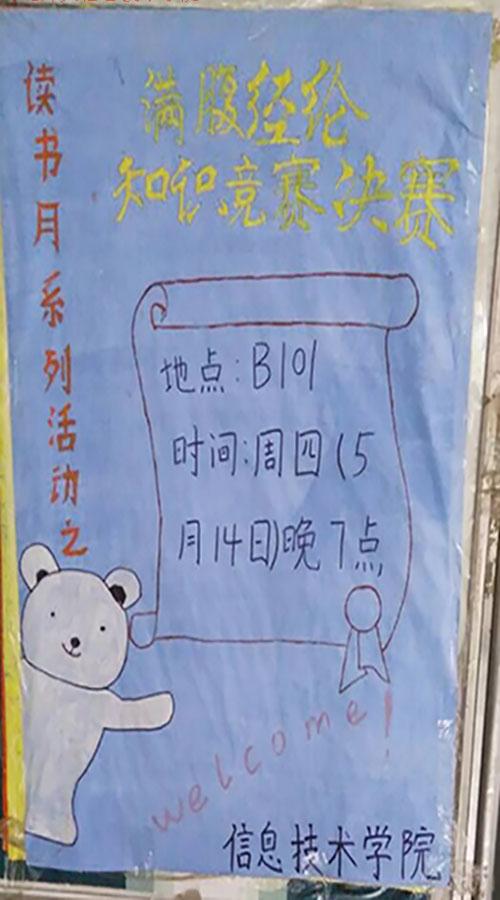 读书月系列活动之
满腹经纶
知识竞赛决赛
地点:B101
时间:周四(5
月14日)晚7点
welcome!
信息技术学院